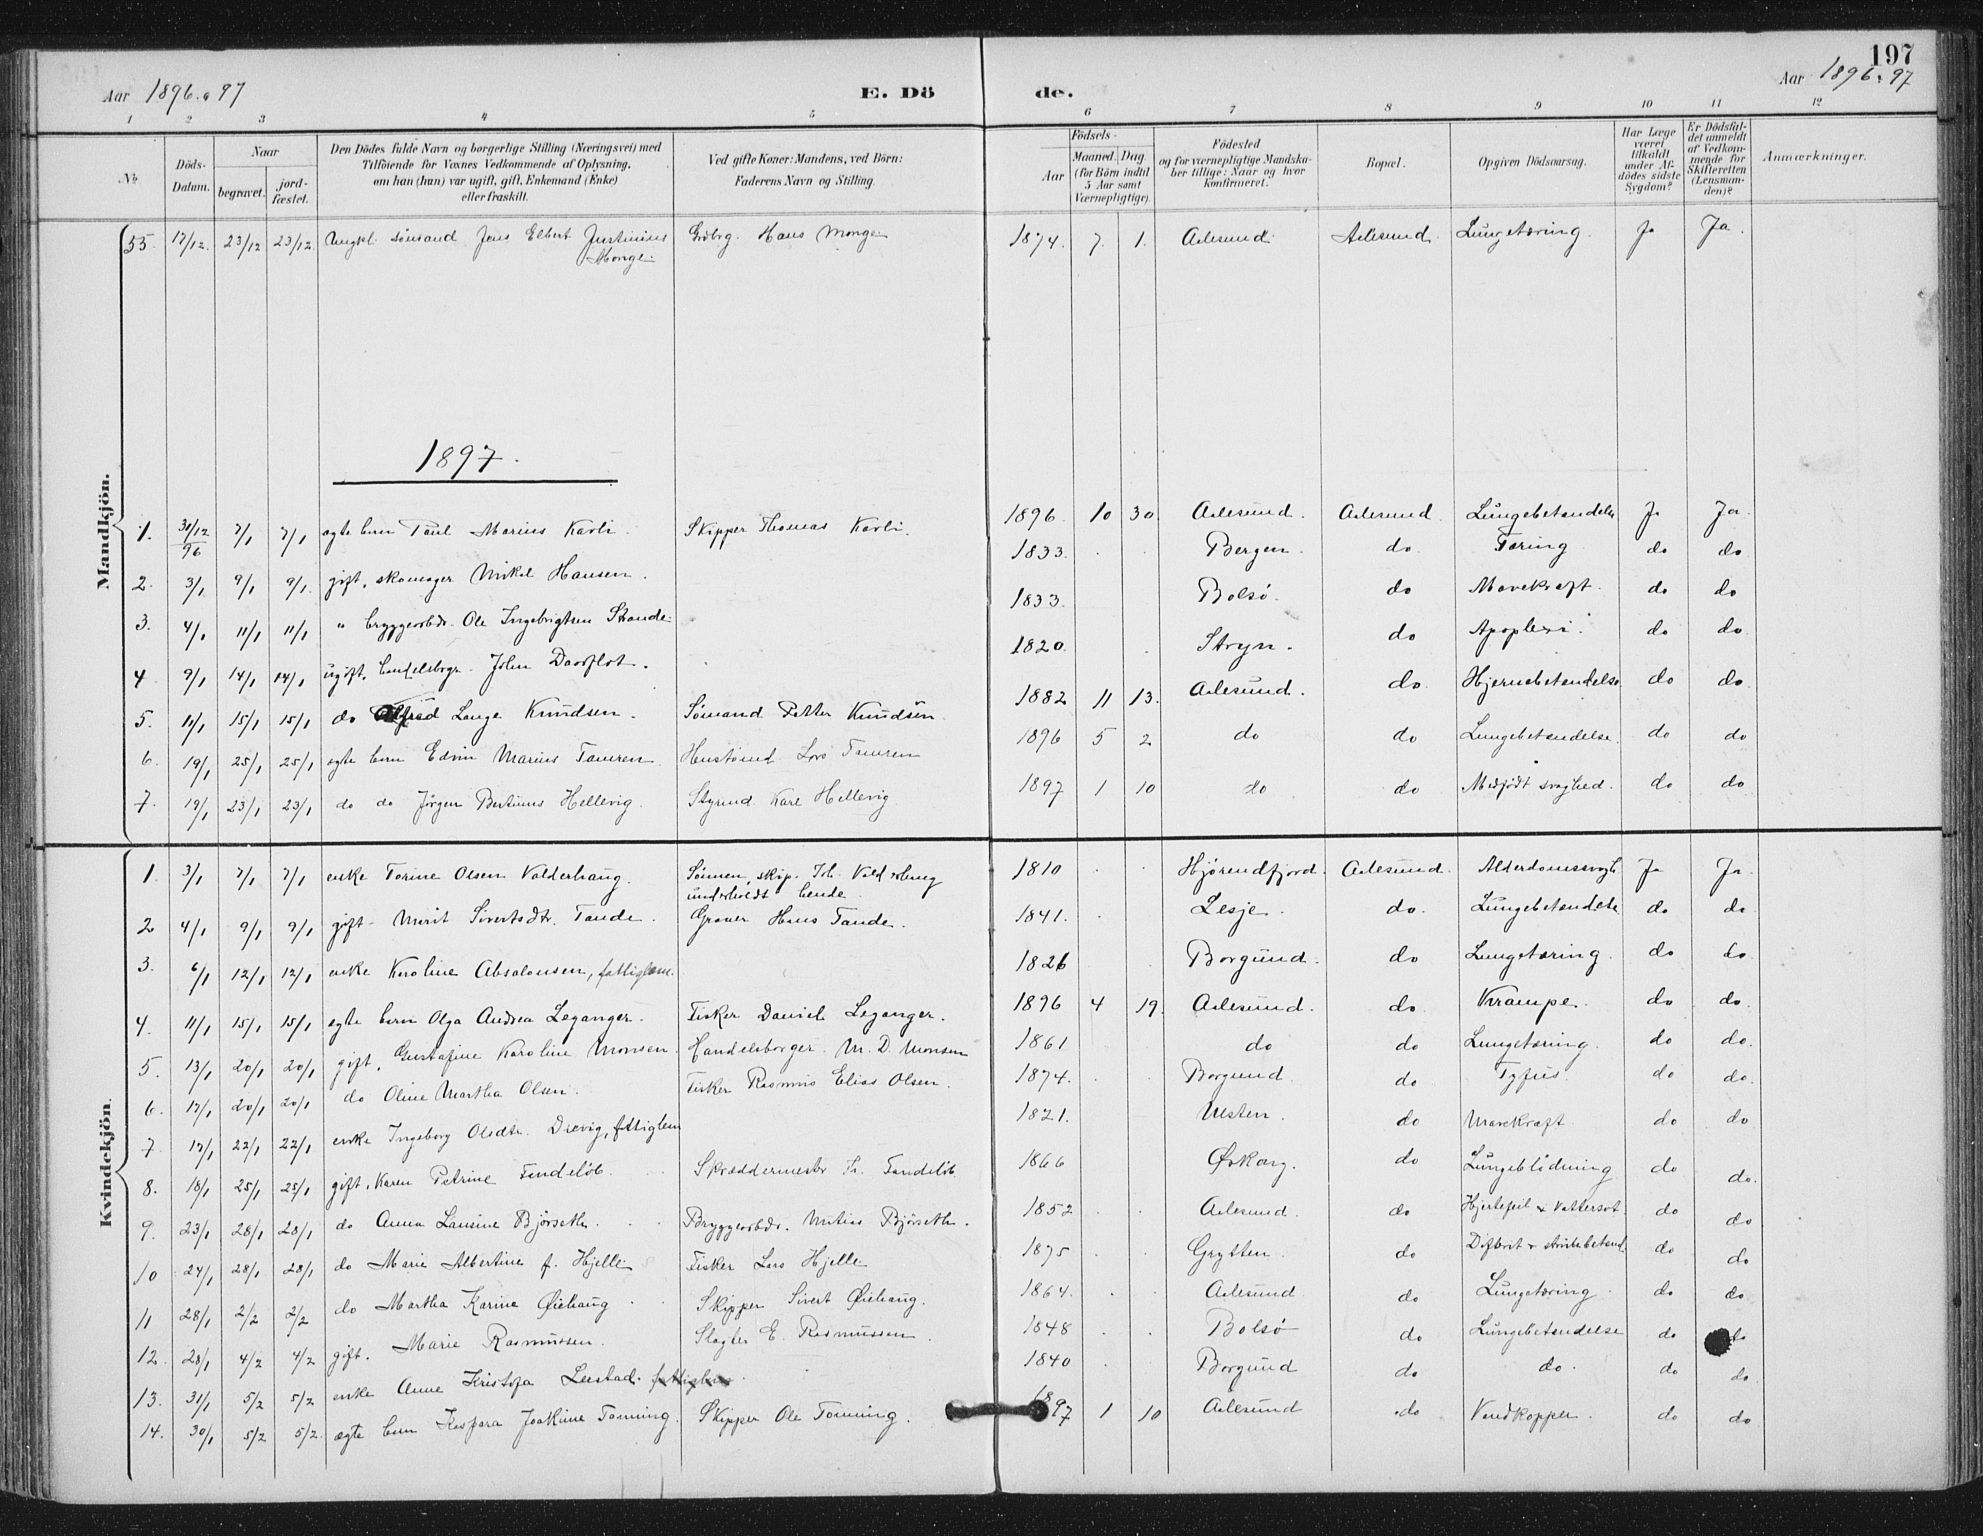 197
Aar 1896 & 97 E. Dö de. Aar 1896 & 97
1 2 3 4 5 6 7 8 9 10 11 12
No. Döds-Datum. Naar begravet. jord-fæstet. Den Dödes fulde Navn og borgerlige Stilling (Næringsvei) med Tilföiende for Voxnes Vedkommende af Oplysning, om han (hun) var ugift, gift, Enkemand (Enke) eller fraskilt. Ved gifte Koner: Mandens, ved Börn: Faderens Navn og Stilling. Födsels- Aar Maaned. Dag. (for Börn indtil 5 Aar samt Værnepligtige). Födested og for værnepligtige Mandska-ber tillige: Naar og hvor konfirmeret. Bopæl. Opgiven Dödsaarsag. Har Læge været tilkaldt under Af-dödes sidste Sygdom? Er Dödsfal-det anmeldt af Vedkom-mende for Skifteretten (Lensman-den)? Anmærkninger.
Mandkjön.
55. 17/12 23/12 23/12 Ungkl. sömand Jens Elbert Justinius Monge Hans Monge 1874. 7. 1. Aalesund Aalesund Lungetæring. Ja Ja.
1897.
1. 31/12 96 7/1 7/1 ægte barn Paul Marius Karli Skipper Thomas Karli. 1896. 10 30 Aalesund. Aalesund Lungebetændelse Ja Ja.
2. 3/1 9/1 9/1 gift, skomager Mikal Hansen. 1833. Bergen. do Tæring do do
3. 4/1 11/1 11/1 " bryggearbdr. Ole Ingebrigtsen Strande 1833. Bolsö. do Mavekræft. do do
4 9/1 14/1 14/1 ugift, handelsbgr. John Daaflot. 1820. Stryn. do Apoplexi. do do
5. 11/1 15/1 15/1 do Alfred Lange Knudsen. Sömand Petter Knudsen 1882 11 13. Aalesund. do. Hjernebetændelse do do.
6. 19/1 25/1 25/1 ægte barn Edvin Marius Tamren Lars Tamren 1896 5 2 do do Lungebetændelse. do do
7. 19/1 23/1 23/1 do do Jörgen Bertinus Hellevig. Styrmd. Karl Hellevig 1897 1 10 do do Medfödt svaghed. do do
Kvindekjön.
1. 3/1 7/1 7/1 enke Torine Olsen Valderhaug. Sönnen, skip. Joh. Valderhaug underholdt hende. 1810 Hjörendfjord. Aalesund. Alderdomssvagh. Ja Ja.
2 4/1 9/1 9/1 gift Marit Sivertsdtr. Tande. Graver Hans Tande. 1841. Lesje. do. Lungebetændelse do do
3. 6/1 12/1 12/1 enke Karoline Absalonsen, fattiglem. 1826 Borgund. do Lungetæring. do do.
4. 11/1 15/1 15/1 ægte barn Olga Andrea Leganger. Fisker Daniel Leganger. 1896 4 19. Aalesund. do. Krampe. do do.
5. 13/1 20/1 20/1 gift, Gustafine Karoline Monsen. Handelsborger M. D. Monsen 1861 do do Lungetæring. do do.
6. 17/1 20/1 20/1 do Oline Martha Olsen. Fisker Rasmus Elias Olsen. 1874. Borgund do Tyfus. do do.
7. 17/1 22/1 22/1 enke Ingeborg Olsdtr. Drevig, fattiglem 1821. Ulsten. do Mavekræft. do do
8. 18/1 25/1 25/1 gift, Karen Petrine Tandelöb. Skræddermester Tandelöb. 1866 Örskog. do Lungeblödning do do.
9. 23/1 28/1 28/1 do Anna Lausine Björseth. Bryggearbdr. Mathias Björseth. 1852 Aalesund. do Hjertefeil & Vattersot. do do
10 24/1 28/1 28/1 do Marie Albertine f. Hjelle Fisker Lars Hjelle 1875 Grytten. do Difterit & strubebetænd. do do
11 28/1 2/2 2/2 do Martha Karine Öiehaug Skipper Sivert Öiehaug. 1864. Aalesund do Lungetæring. do do
12. 28/1 4/2 4/2 gift. Marie Rasmussen. Slagter E. Rasmussen 1848 Bolsö do Lungebetændelse do do
13. 31/1 5/2 5/2 enke Anne Kristofa Leestad. fattiglem. 1840 Borgund do do. do do.
14. 30/1 5/2 5/2 ægte barn Kaspara Joakime Tonning. Skipper Ole Tonning. 1897 1 10 Aalesund do Vandkopper. do do